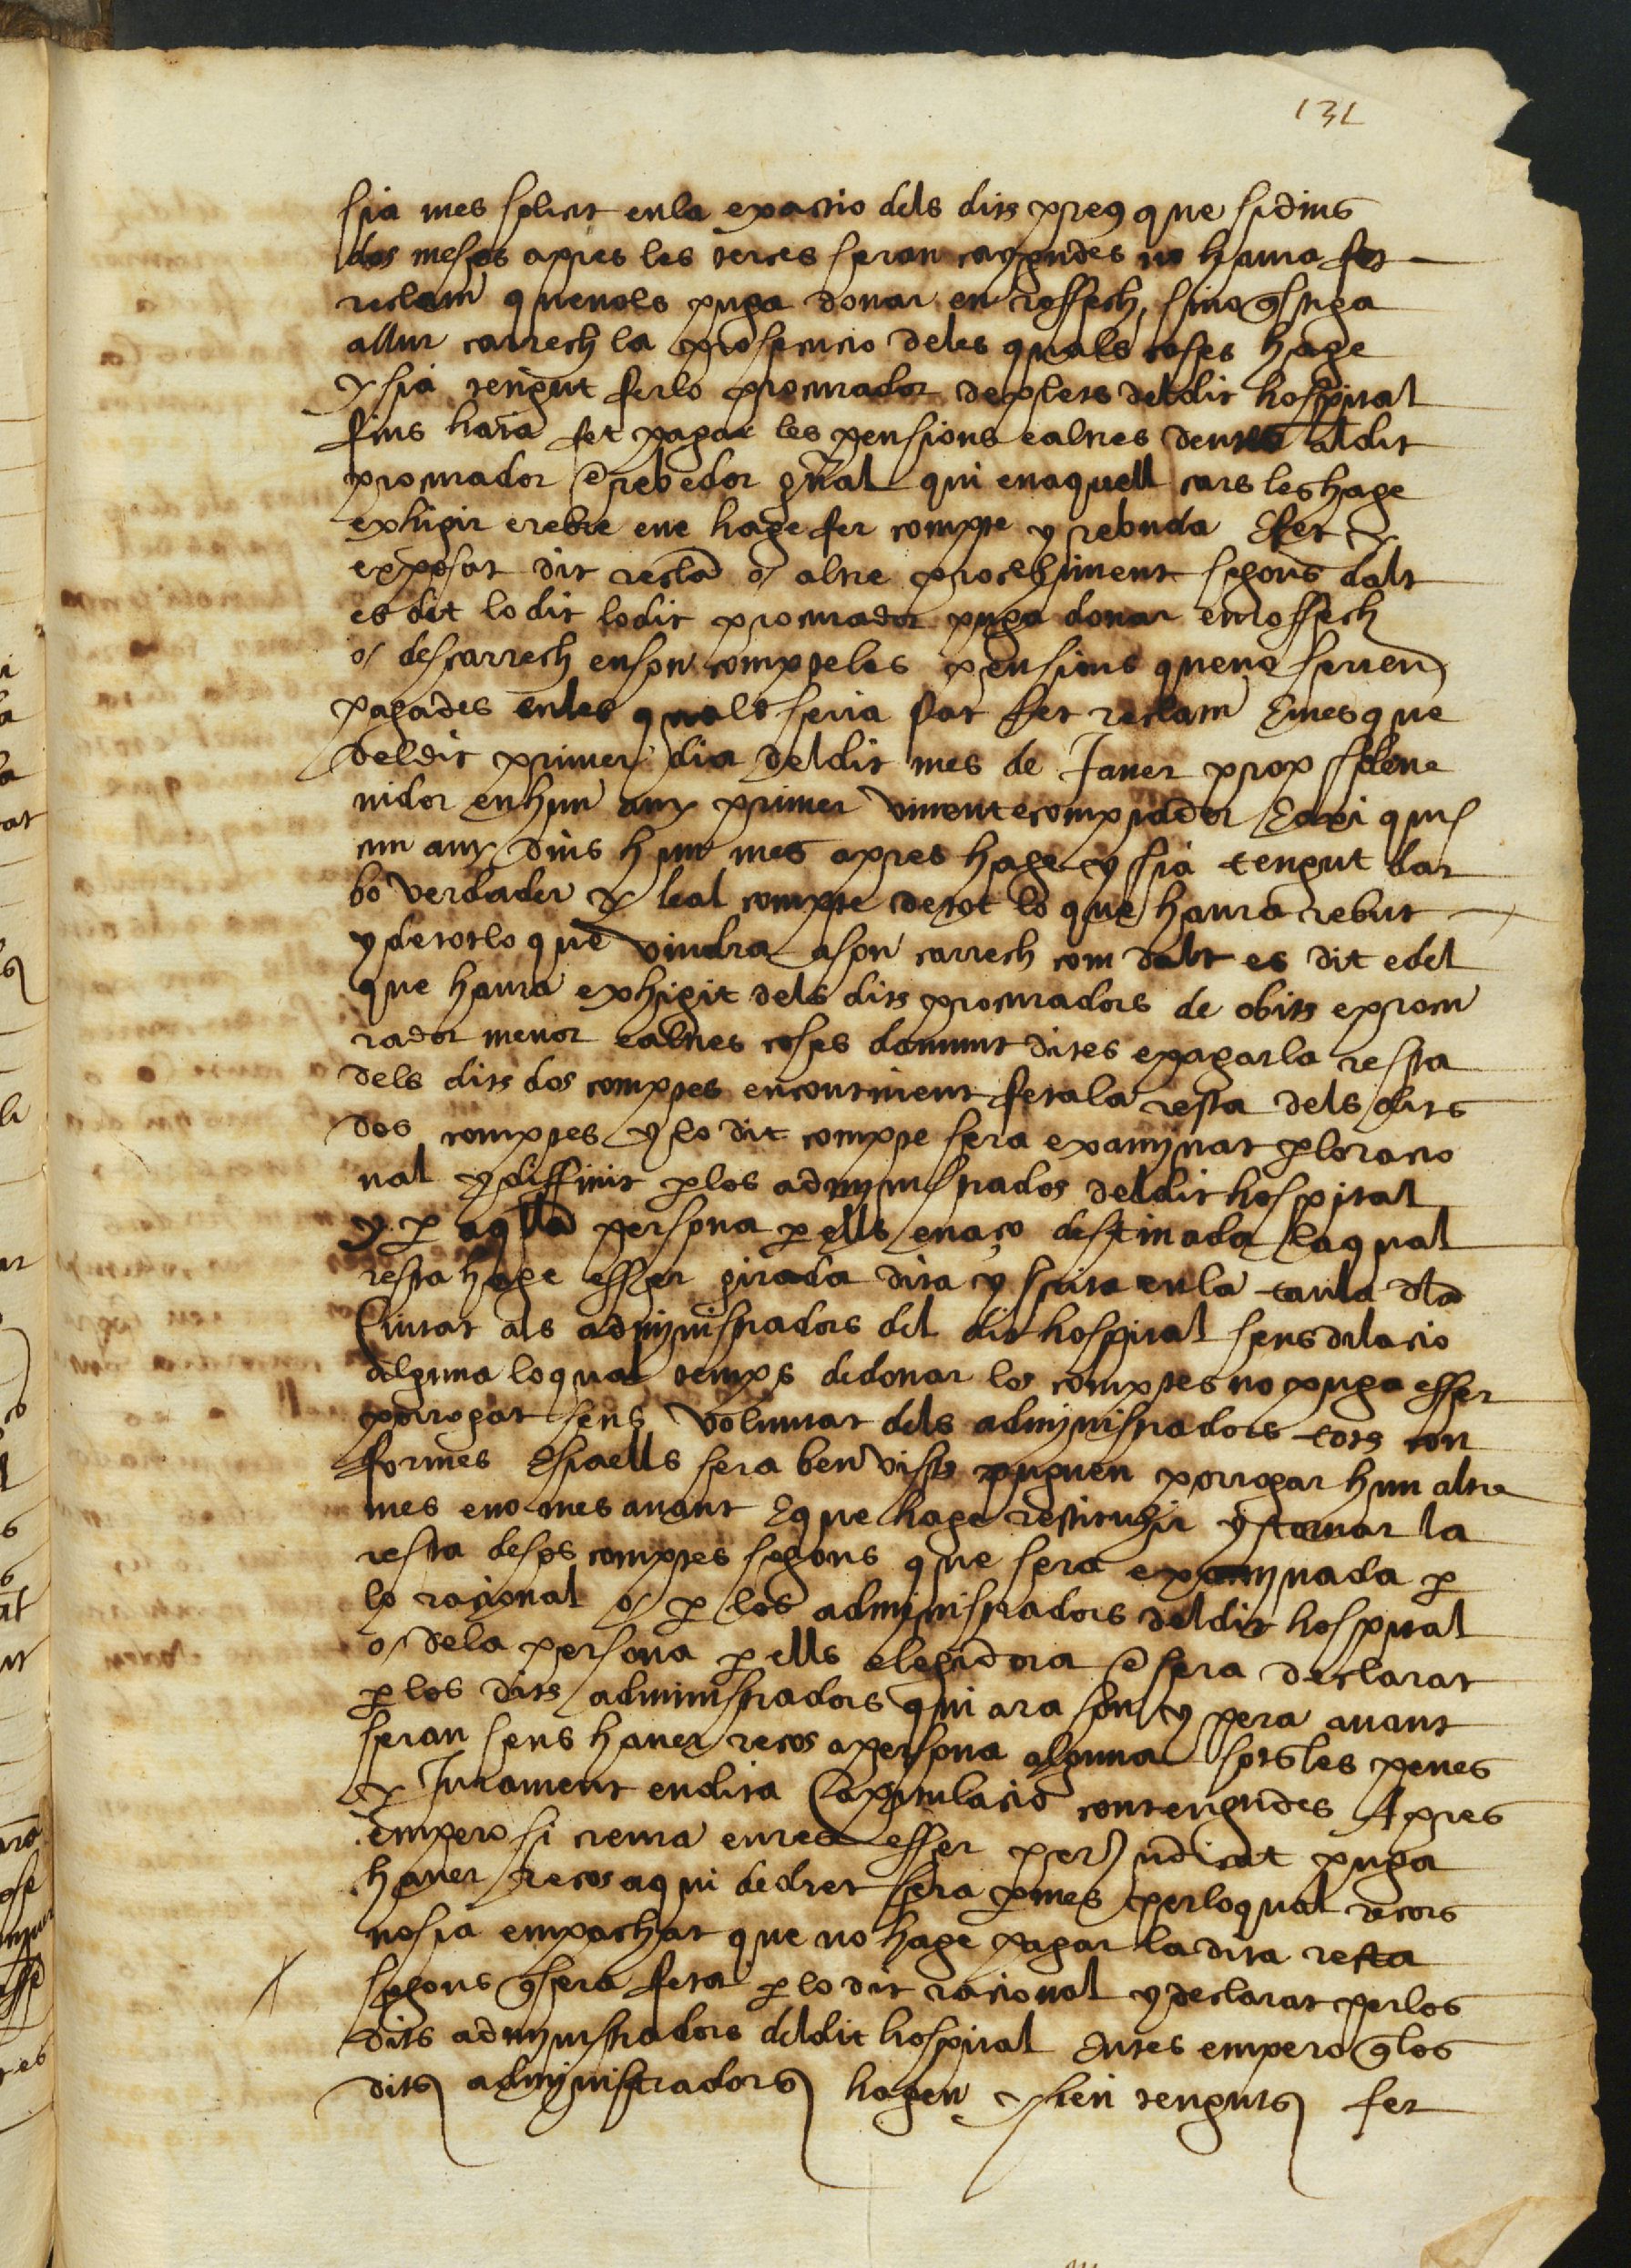 131
sia mes solicit enla exactio dels dits preus que si dins
dos mesos apres les terces seran caygudes no haura fet
reclam quenols puga donar en rossech, sino q̄ stiga
allur carrech la prosecucio deles quals coses hage
y sia tengut ferlo procurador de plets deldit hospital
fins haia fet pagar les pensions ealtres deutes aldit
procurador e rebedor gñal qui enaquell cars leshage
exhigir erebre ene hage fer compte y rebuda E fet y
exposat dit recla o altre procehiment segons dalt
es dit lodit lodit procurador puga donar en rossech
o descarrech enson compte les pensions queno serien
pagades enles quals seria stat fet reclam E mes que
deldit primer dia deldit mes de Janer prop sdeue
nidor enhun any primer vinent e comptador E axi quis
cun any dins hun mes apres hage y sia tengut dar
bo verdader y leal compte detot lo que haura rebut
y detot lo que vindra ason carrech com dalt es dit edel
que haura exhigit dels dits procuradors de obits eprocu
rador menor ealtres coses damunt dites epagarla resta
dels dits dos comptes encontinent feta la resta dels dits
dos comptes y lo dit compte sera examynat p̱ loracio
nal y diffinit p̱ los admynistrados deldit hospital
y p̱ aq̄lla persona p̱ ells enaço destinada laqual
resta hage esser girada dita y scrita enla taula dla
Ciutat als admynistradors del dit hospital sens dilacio
alguna loqual temps dedonar los comptes no puga esser
porrogat sens voluntat dels admynistradors tots con
formes E si aells sera ben vist puguen porrogar hun altre
mes eno mes auant E que hage restituhir y tornar la
resta desos comptes segons que sera examynada p̱
lo racional o p̱ los admynistradors deldit hospital
o dela persona p̱ ells elegidora e sera declarat
p̱ los dits administradors qui ara son y pera auant
seran sens hauer recos apersona alguna sots les penes
y Jurament endita Capitulacio contengudes Apres
empero si creura enres esser perJudicat puga
hauer recos aqui dedret sera p̱mes perloqual recors
nosia empachat que no hage pagar ladita resta
segons q̄ sera feta p̱ lo dit racional y declarat perlos
dits admynistradors deldit hospital Entes empero q̄ los
dits admynistradors hagen y sien tenguts fer